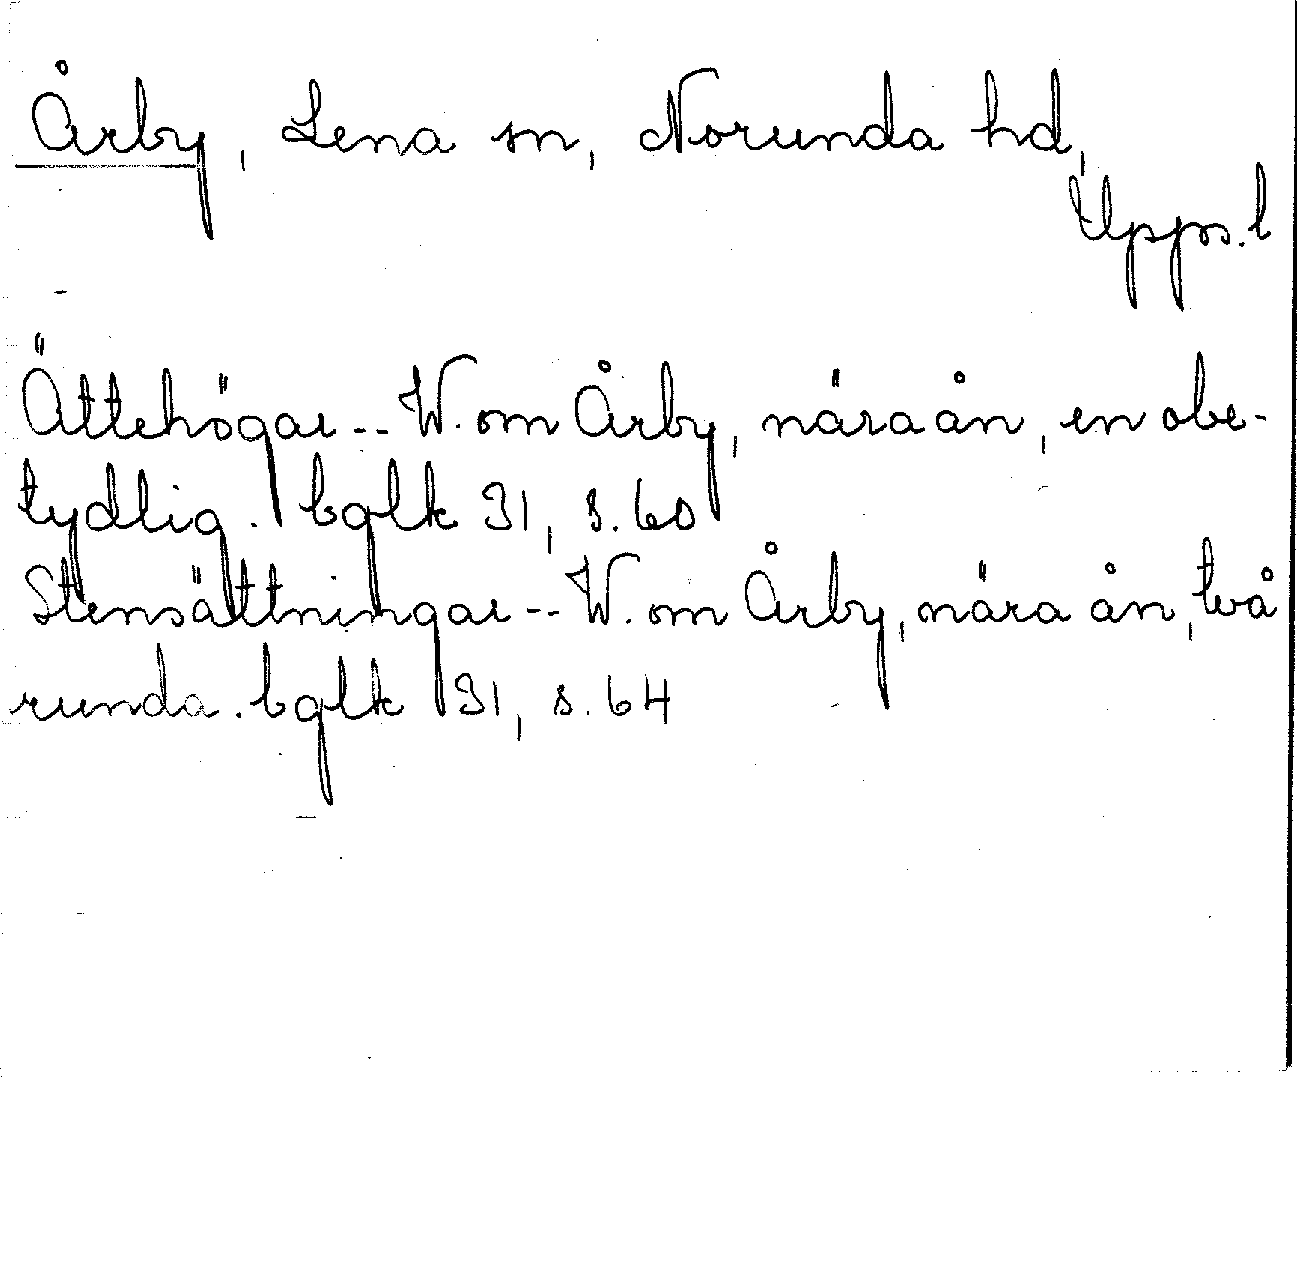 Årby, Lena sn, Norunda hd,
Upps. l
Ättehögar -- W. om Årby, nära ån, en obe-
tydlig. bglk 31, s. 60
Stensättningar -- W. om Årby, nära ån, två
runda. bglk 31, s. 64